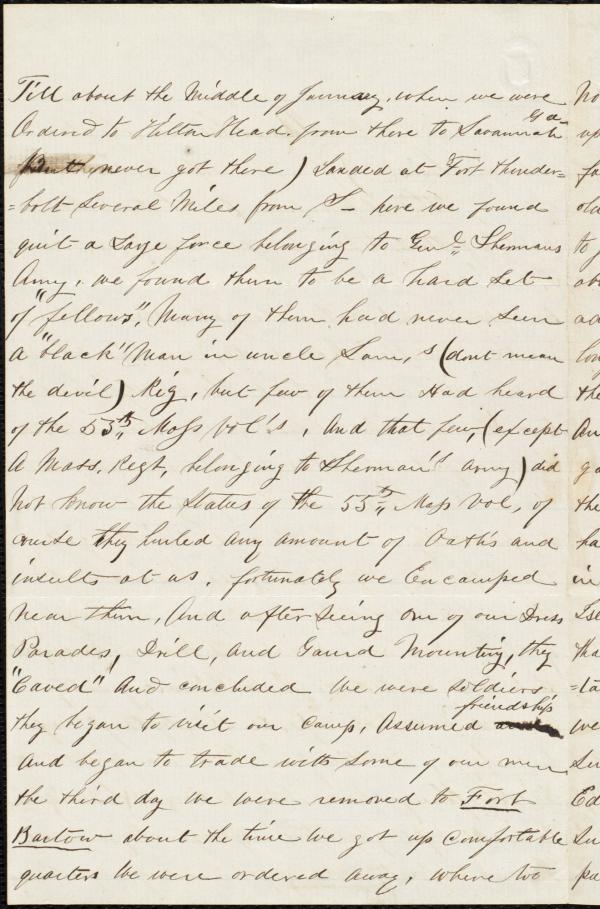 Till about the Middle of January, when we were
Ordered to Hilton Head. from there to Savannah Ga
(But they never got there) Landed at Fort thunder=
=bolt Several Miles from S— here we found
quit a Large force belonging to Genl. Shermans
Army, we found them to be a hard Set
of "fellows", Many of them had never Seen
a "black" Man in uncle Sam,s (dont mean
the devil) Rig, but few of them Had heard
of the 55th Mass Vol's, And that few, (except
A Mass. Regt, belonging to Sherman's army) did
Not know the Status of the 55th Mass Vol, of
curse they hurled any amount of Oath's and
insults at us. fortunately we Encamped
near them, And after Seeing one of our Dress
Parades, Drill, and Gaurd Mounting, they
"Caved" And concluded We were Soldiers,
they began to visit our Camp, Assumed friendship
and began to trade with Some of our men
the third day we were removed to Fort
Bartow about the time We got up Comfortable
quarters We were ordered away, where to